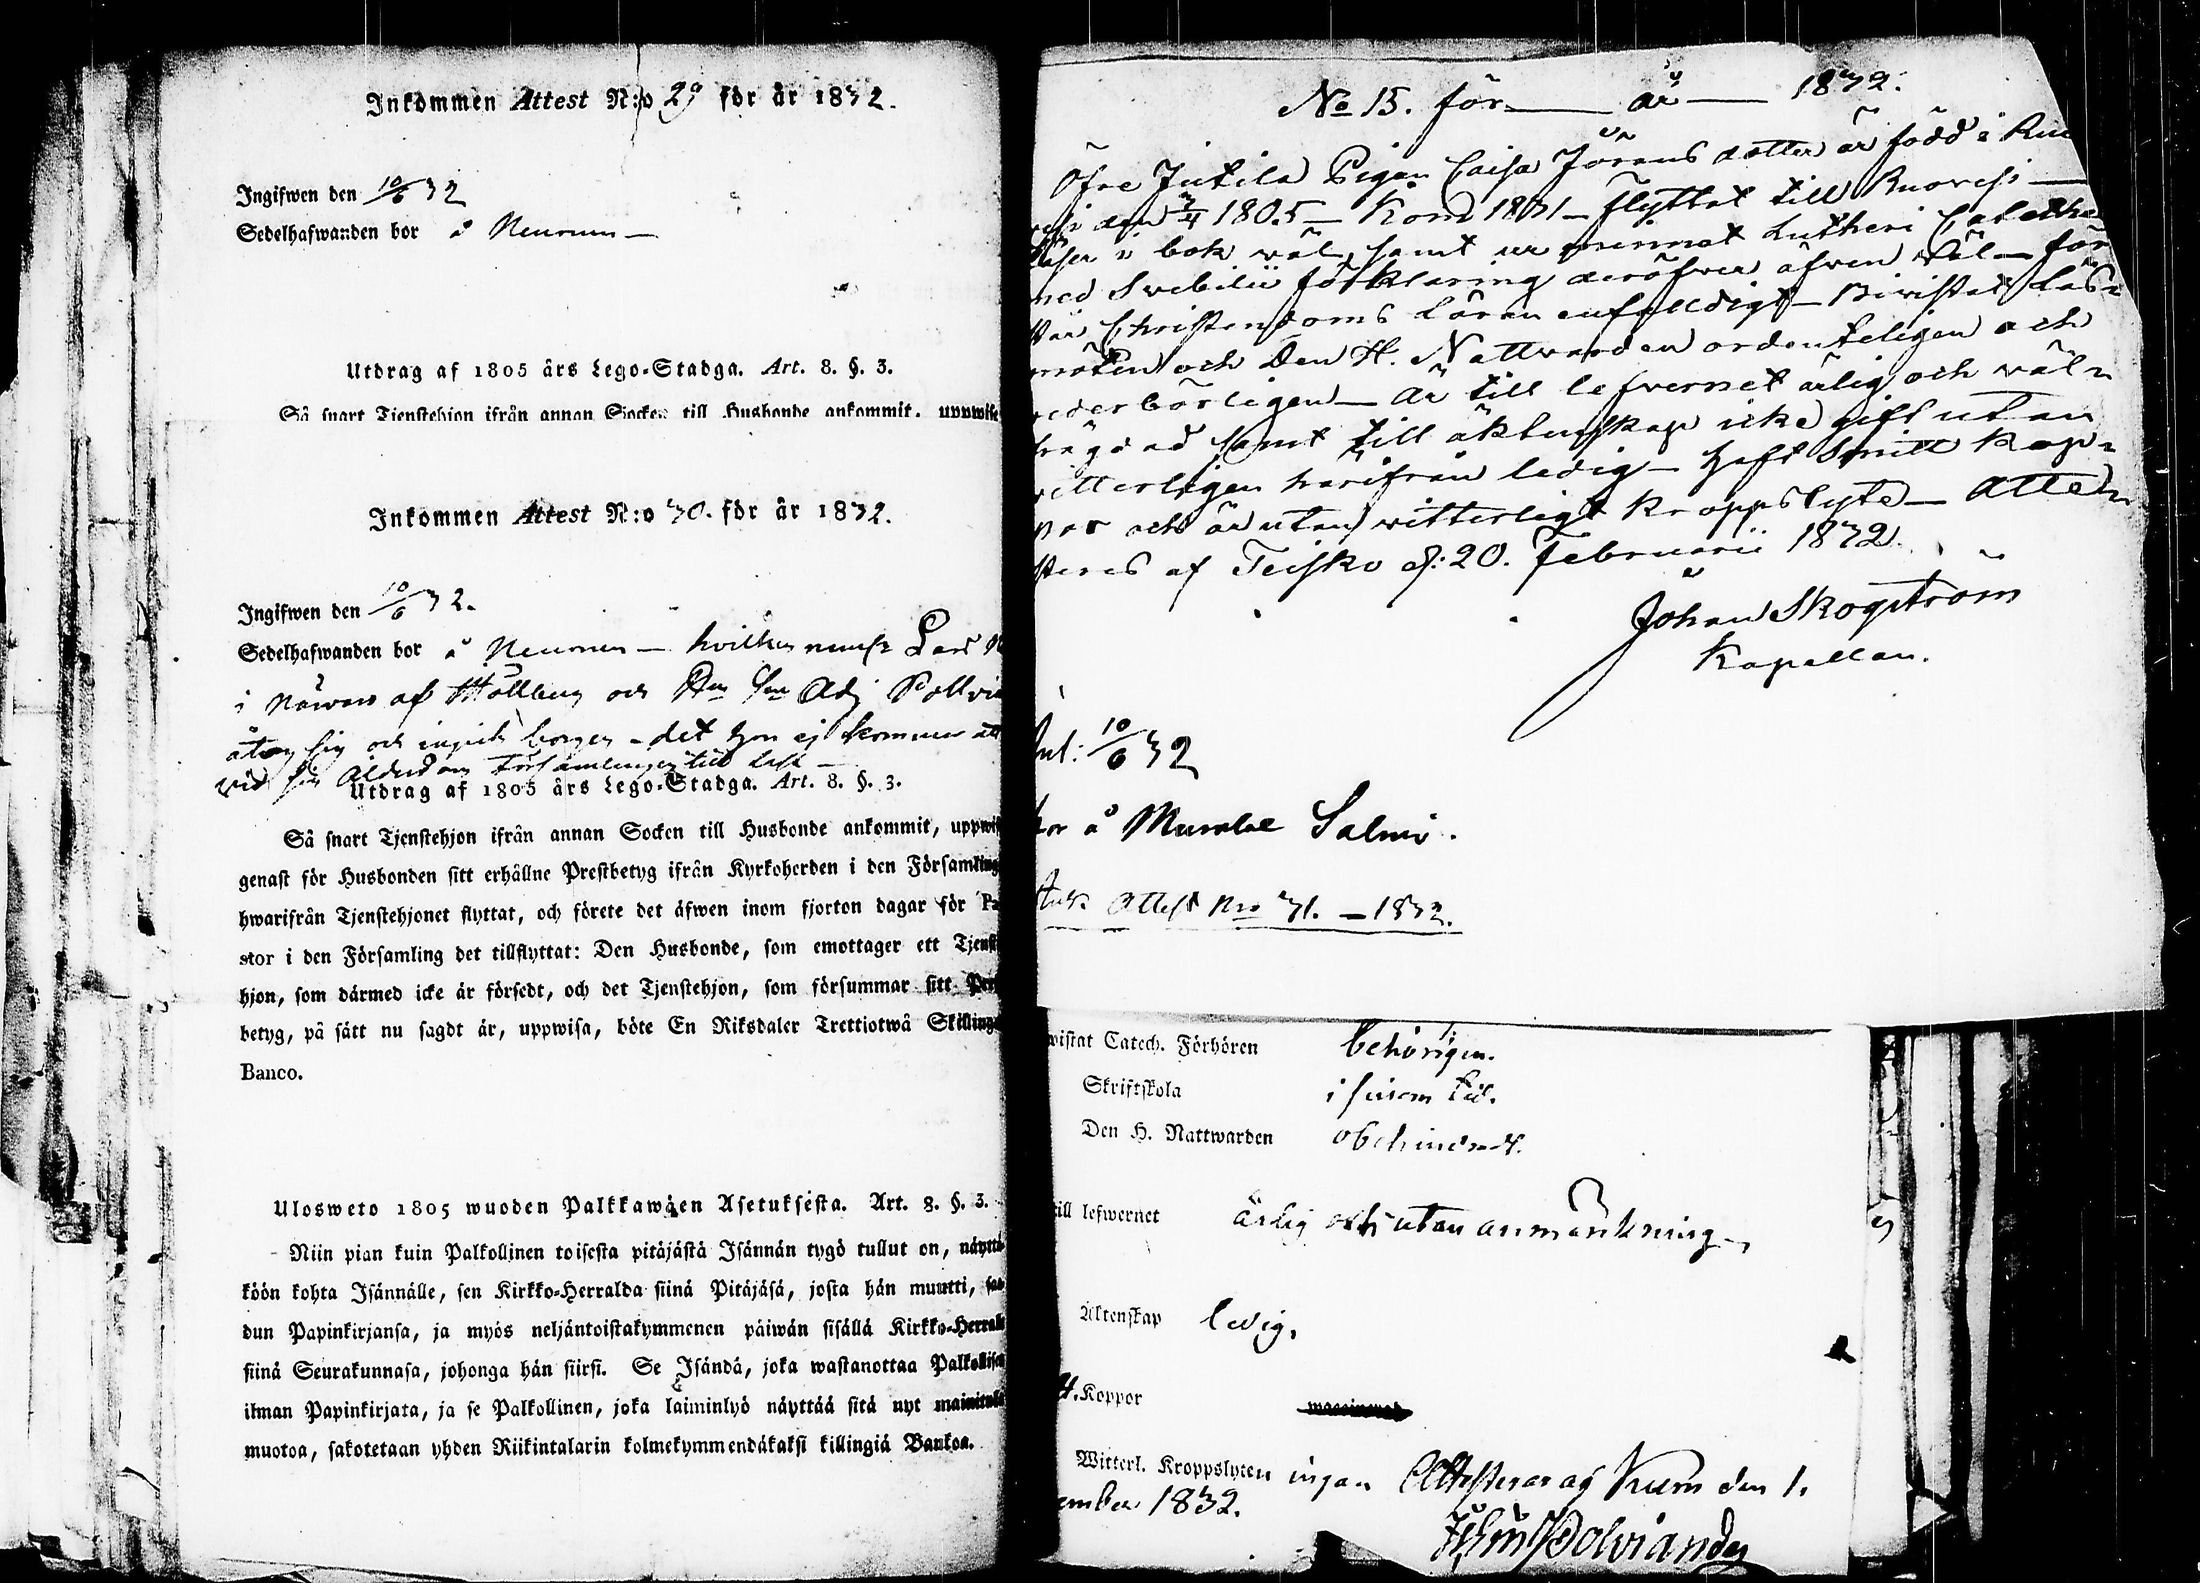 Inkommen Attest N:o 29 för år 1832.
Ingifwen den 10/6 32
Sedelhafwanden bor å Neuronen —
Utdrag af 1805 års Lego-Stadga. Art. 8. §. 3.
Så snart Tienstehion ifrån annan Socken till Husbonde ankommit, uppwise
Inkommen Attest N:o 30. för år 1832.
Ingifwen den 10/6 32.
Sedelhafwanden bor å Neuronen — hvilken
i närwaro af och Adj
åtog sig och ingick borgen – det hon ej kommer att
wid sin ålderdom Församlingen till last —
Utdrag af 1805 års Lego-Stadga. Art. 8. §. 3.
Så snart Tjenstehjon ifrån annan Socken till Husbonde ankommit, uppwis
genast för Husbonden sitt erhållne Prestbetyg ifrån Kyrkoherden i den Församling
hwarifrån Tjenstehjonet flyttat, och förete det äfwen inom fjorton dagar för Pa
stor i den Församling det tillflyttat: Den Husbonde, som emottager ett Tjenst
hjon, som därmed icke är försedt, och det Tjenstehjon, som försummar sitt Pre
betyg, på sätt nu sagdt är, uppwisa, böte En Riksdaler Trettiotwå Skillinga
Banco.
Ulosweto 1805 wuoden Palkkawäen Asetuksesta. Art. 8. §. 3.
Niin pian kuin Palkollinen toisesta pitäjästä Isännän tygö tullut on, näyttä
köön kohta Isännälle, sen Kirkko-Herralda siinä Pitäjäsä, josta hän muutti, saa
dun Papinkirjansa, ja myös neljäntoistakymmenen päiwän sisällä Kirkko-Herralle
siinä Seurakunnasa, johonga hän siirsi. Se Isändä, joka wastanottaa Palkollisen
ilman Papinkirjata, ja se Palkollinen, joka laiminlyö näyttää sitä nyt mainitula
muotoa, sakotetaan yhden Riikintalarin kolmekymmendäkaksi killingiä Bankoa.
No 15. för — år — 1832.
Öfre Jutila Pigan Caisa Jörans dotter är född i Ruo
vesi den 3/4 1805 – Kom 1831 – Flyttat till Ruovesi —
läser i bok wäl, samt ur minnet Lutheri Cateche
med Svebilii förklaring deröfwer äfwen wäl – för
står Christendoms Läran enfalldigt – Biwistat Läs-
möten och Den H. Nattwarden ordenteligen och
wederbörligen – Är till lefvernet ärlig och wäl-
frägdad samt till äktenskap icke gift utan
witterligen härifrån ledig – Haft Smitt kop-
por och är utan witterligt kroppslyte – Atte-
steras af Teisko d: 20. Februarii 1832.
Johan Skogström
Kapellan.
Inl: 10/6 32
bor å Murole Salmi.
Attest Nro 31. – 1832.
wistat Catech. Förhören behörigen.
Skriftskola i sinom tid.
Den H. Nattwarden obehindrad.
till lefwernet ärlig och utan anmärkning –
Äktenskap ledig.
H. Koppor
Witterl. Kroppslyten ingen Attesterar af Kuru den 1.
ember 1832.